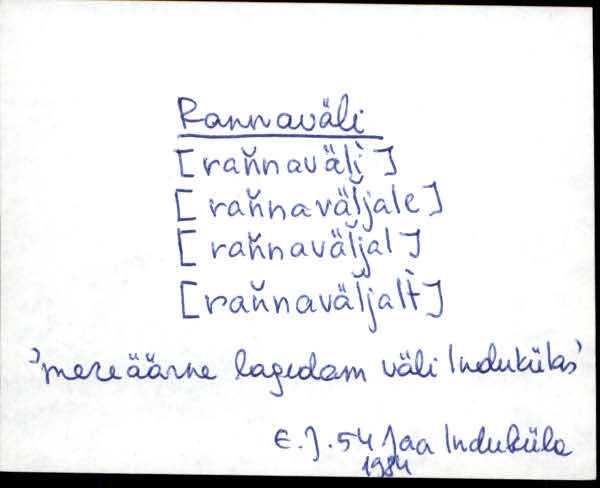 Rannaväli
[rañnaväĺì]
[rañnaväĺjale]
[rañnaväĺjal]
[rañnaväĺjalt̀]
'mereäärne lagedam väli Indukülas'
E.J. 54 Jaa Induküla
1984